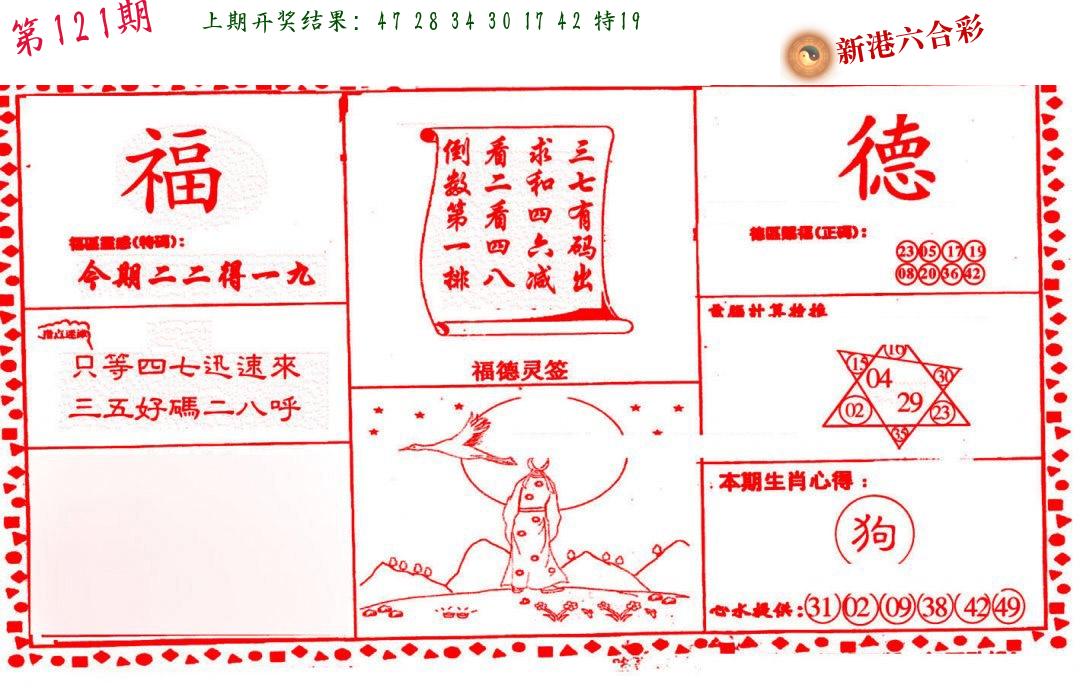 第121期
上期开奖结果：47 28 34 30 17 42 特19
新港六合彩
福
福區靈感(特碼)：
今期二二得一九
指点迷津
只等四七迅速來
三五好碼二八呼
三七有码出
求和四六减
看二看四八
倒数第一排
福德灵签
德
德區賜福(正碼)：
23 05 17 19
08 20 36 42
電腦計算妙推
16
15 04 30
02 29 23
35
本期生肖心得：
狗
心水提供：31 02 09 38 42 49